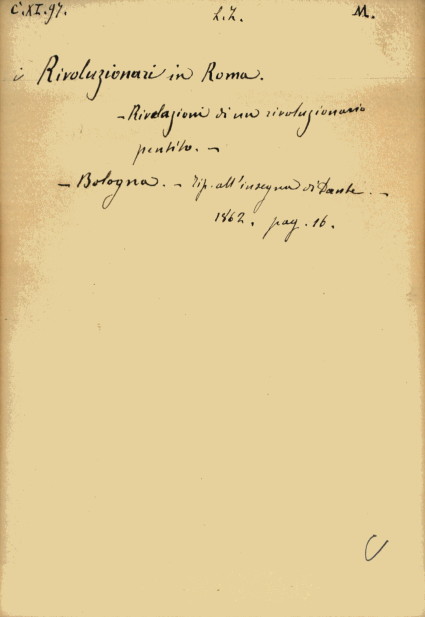 C.XI.97. L.Z. M.
i Rivoluzionari in Roma.
– Rivelazioni di un rivoluzionario
pentito. –
– Bologna. – Tip. all'insegna di Dante. –
1862. pag. 16.
C